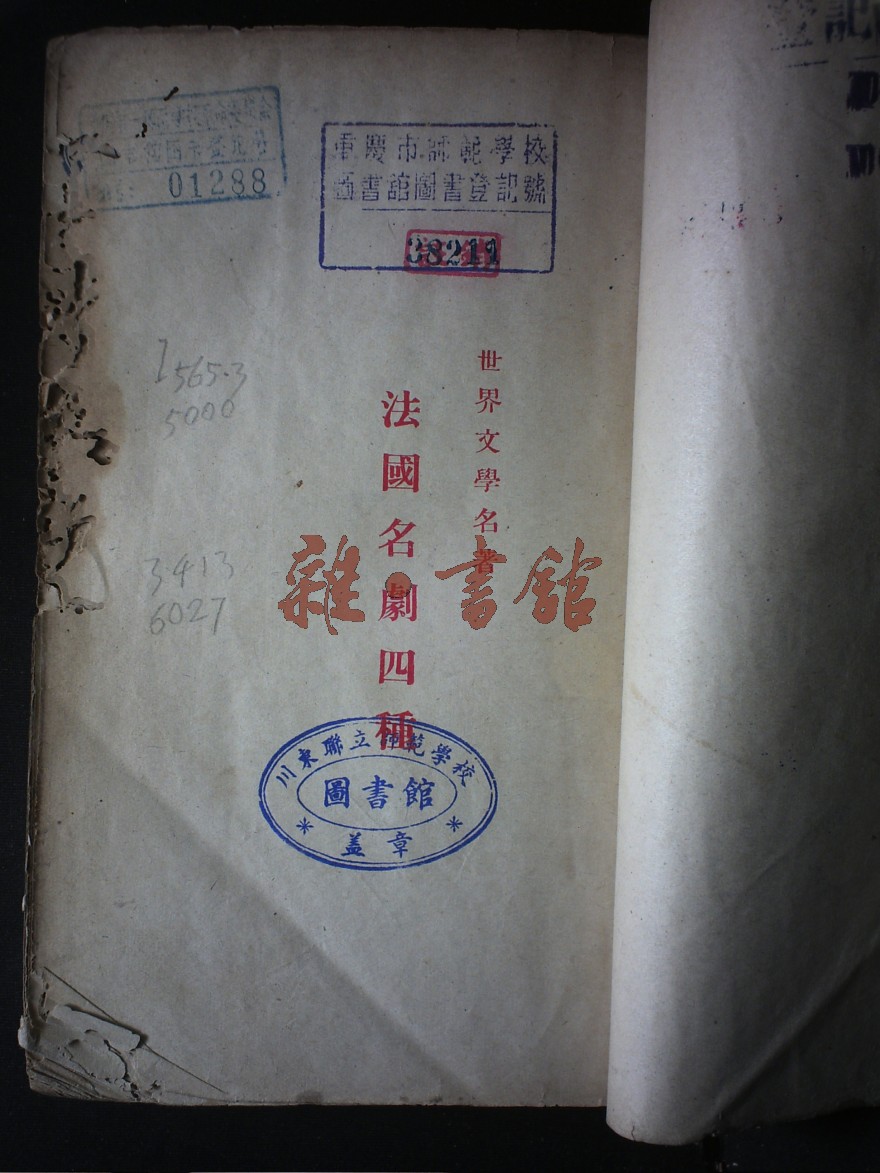 01288
重慶市師範學校
圖書館圖書登記號
38211
世界文學名著
法國名劇四種
I565.3
5000
3413
6027
雜·書館
川東聯立師範學校
圖書館
盖章